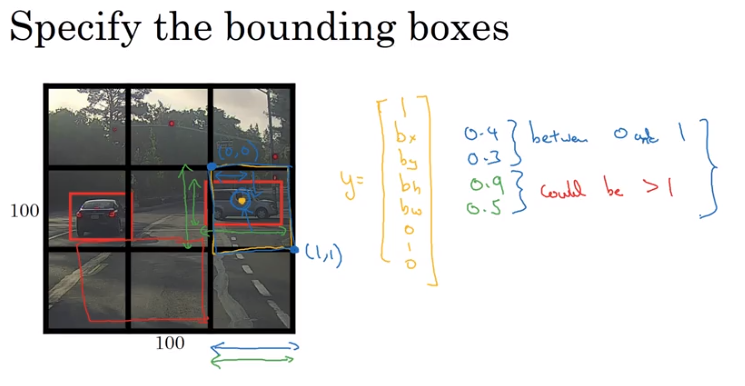 Specify the bounding boxes
(0,0)
100
(1,1)
100
y =
1
bx
by
bh
bw
0
1
0
0.4
0.3
between 0 and 1
0.9
0.5
could be >1